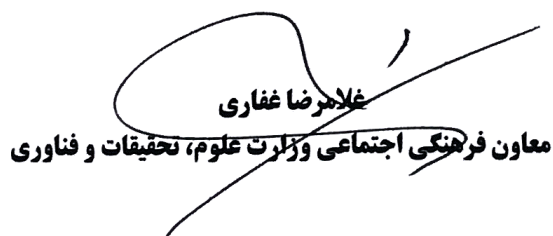 غلامرضا غفاری
معاون فرهنگی اجتماعی وزارت علوم، تحقیقات و فناوری